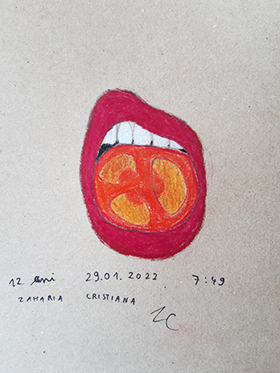 12 ani 29.01.2022 7:49
ZAHARIA CRISTIANA
ZC